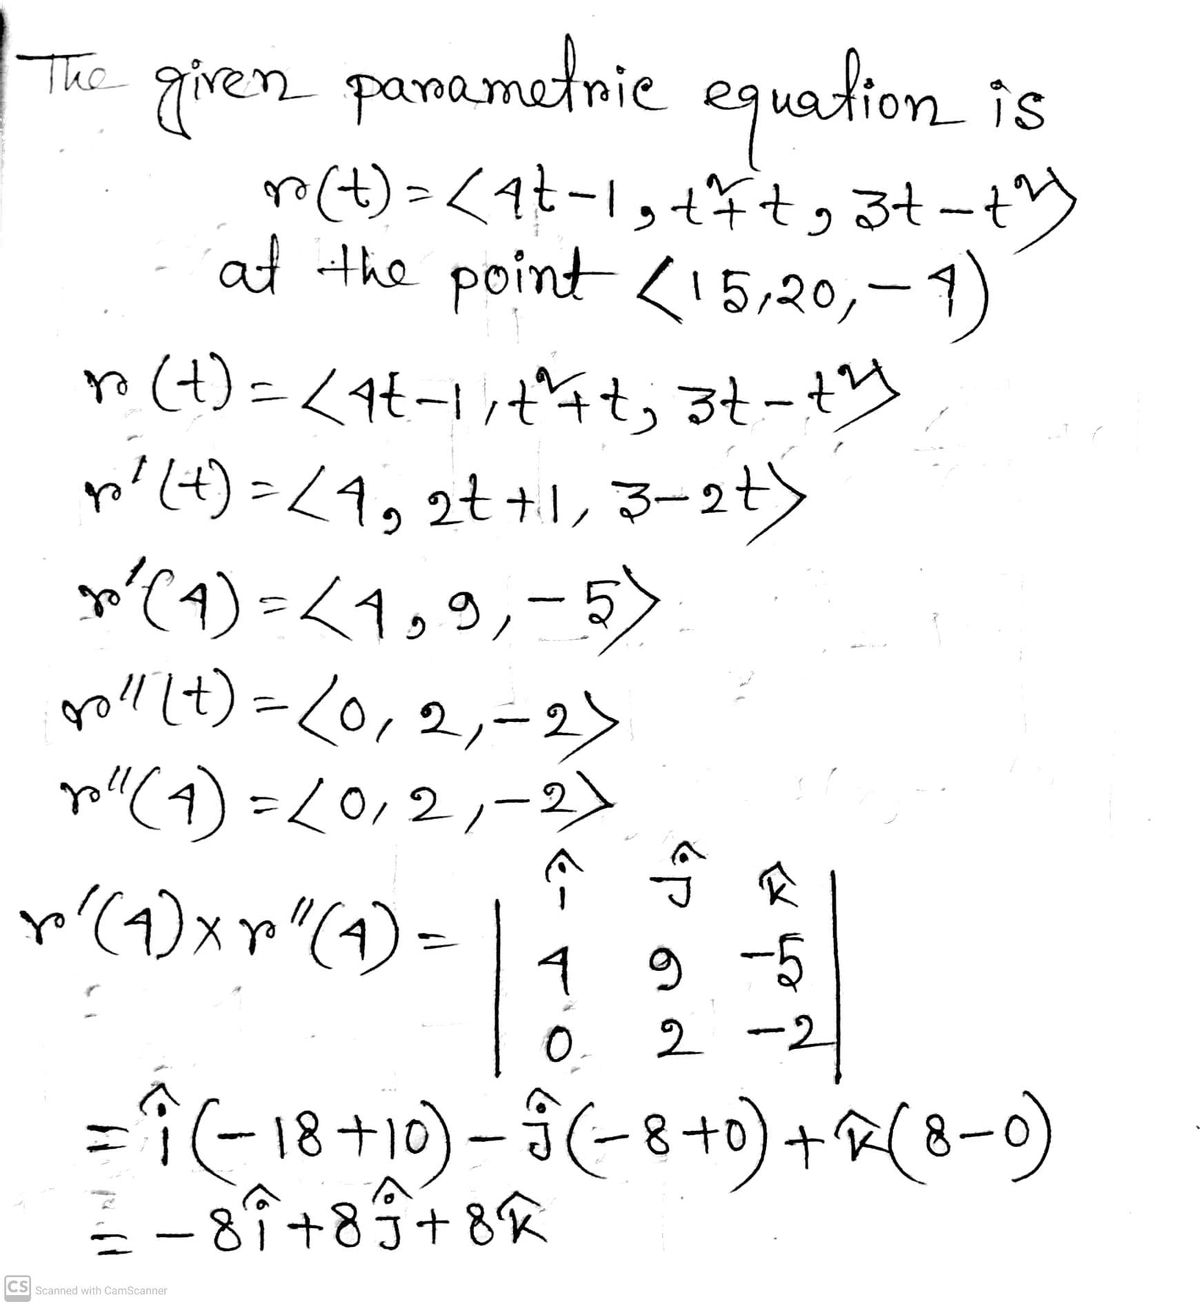 The given parametric equation is
r(t) = <4t-1, t²+t, 3t-t²>
at the point <15,20,-4)
r(t) = <4t-1, t²+t, 3t-t²>
r'(t) = <4, 2t+1, 3-2t>
r'(4) = <4, 9, -5>
r''(t) = <0, 2, -2>
r''(4) = <0, 2, -2>
r'(4) × r''(4) = | î ĵ k̂ |
| 4 9 -5 |
| 0 2 -2 |
= î(-18+10) - ĵ(-8+0) + k̂(8-0)
= -8î + 8ĵ + 8k̂
CS Scanned with CamScanner